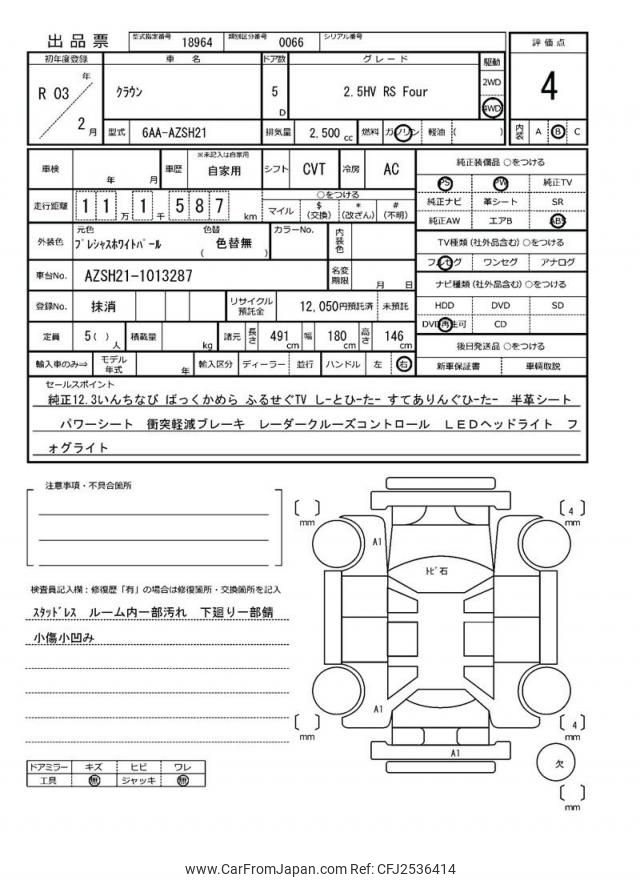 出品票 型式指定番号 18964 類別区分番号 0066 シリアル番号
初年度登録 車 名 ドア数 グレード 駆動 評価点
R 03 年 2 月 クラウン 5 D 2.5HV RS Four 2WD 4WD 4
型式 6AA-AZSH21 排気量 2,500 cc 燃料 ガソリン 軽油 ( ) 内装 A B C
車検 年 月 車歴 ※未記入は自家用 自家用 シフト CVT 冷房 AC
走行距離 1 1 万 1 千 5 8 7 km ○をつける
マイル $ (交換) * (改ざん) # (不明)
外装色 元色 プレシャスホワイトパール 色替 ( 色替無 ) カラーNo. 内装色
車台No. AZSH21-1013287 名変期限 月 日
登録No. 抹消 リサイクル預託金 12,050円預託済 未預託
定員 5( ) 人 積載量 kg 諸元 長さ 491 cm 幅 180 cm 高さ 146 cm
輸入車のみ⇒ モデル年式 年 輸入区分 ディーラー 並行 ハンドル 左 右
純正装備品 ○をつける
PS PW 純正TV
純正ナビ 革シート SR
純正AW エアB ABS
TV種類 (社外品含む) ○をつける
フルセグ ワンセグ アナログ
ナビ種類 (社外品含む) ○をつける
HDD DVD SD
DVD再生可 CD
後日発送品 ○をつける
新車保証書 車輌取説
セールスポイント
純正12.3いんちなび ばっくかめら ふるせぐTV しーとひーたー すてありんぐひーたー 半革シート
パワーシート 衝突軽減ブレーキ レーダークルーズコントロール LEDヘッドライト フ
ォグライト
注意事項・不具合箇所
検査員記入欄:修復歴「有」の場合は修復箇所・交換箇所を記入
スタッドレス ルーム内一部汚れ 下廻り一部錆
小傷小凹み
ドアミラー キズ ヒビ ワレ
工具 無 ジャッキ 無
[ ] mm
[ 4 ] mm
A1
トビ石
A1
[ ] mm
[ 4 ] mm
A1
欠
[ ] mm
www.CarFromJapan.com Ref: CFJ2536414